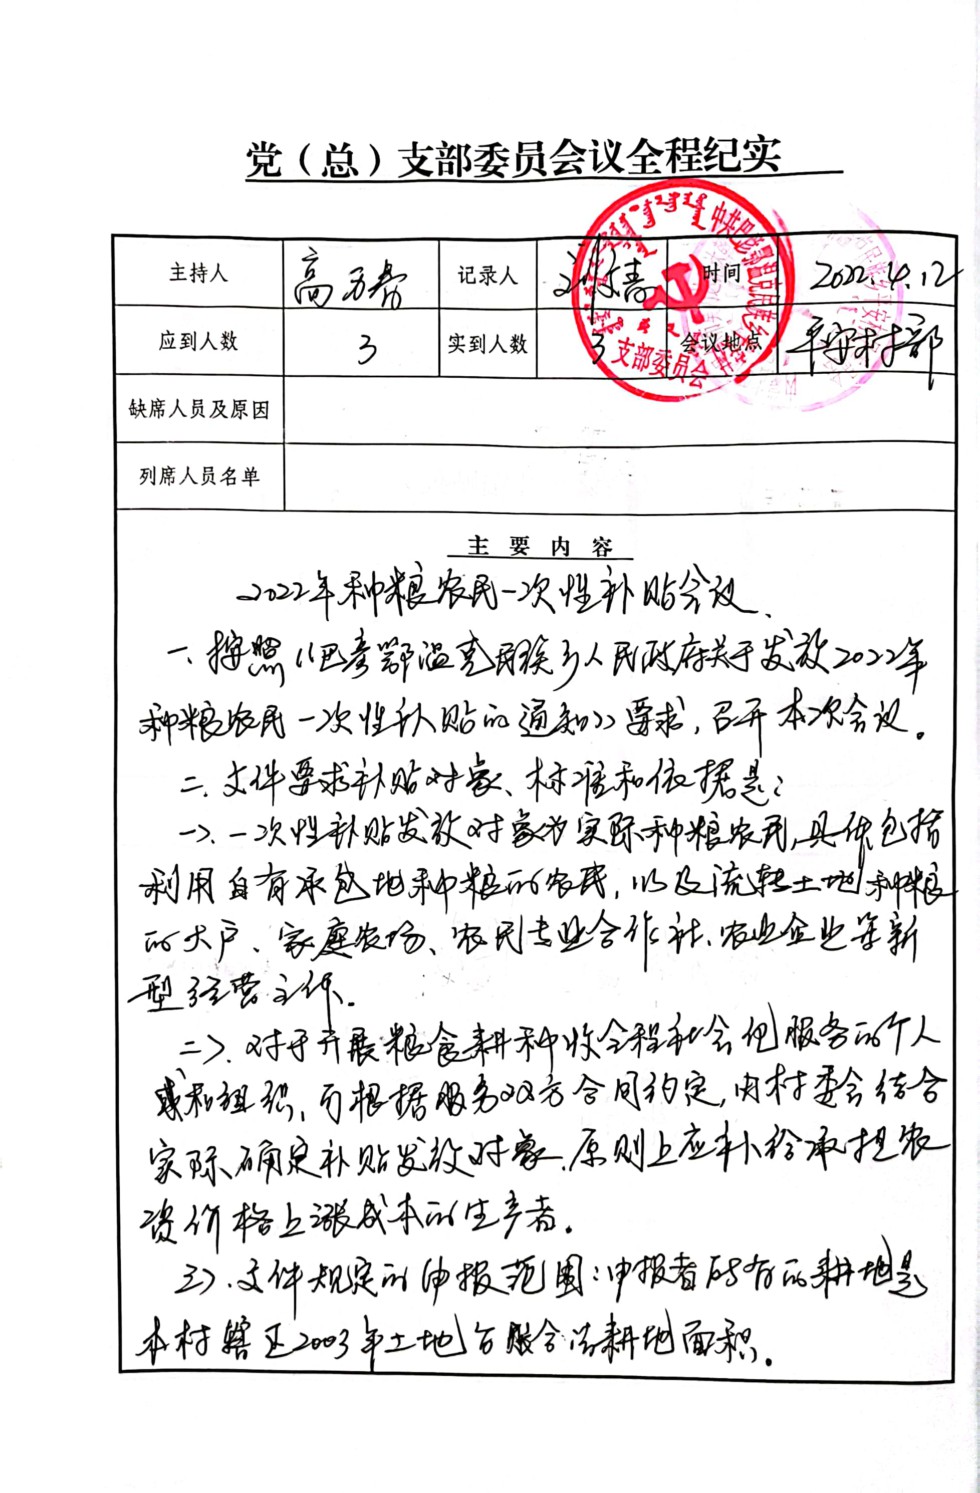 党（总）支部委员会议全程纪实
主持人 高 记录人 时间 2022.4.12
应到人数 3 实到人数 3 会议地点 平安村村部
缺席人员及原因
列席人员名单
中共巴彦鄂温克民族乡
支部委员会
主要内容
2022年种粮农民一次性补贴会议
一、按照《巴彦鄂温克民族乡人民政府关于发放2022年
种粮农民一次性补贴的通知》要求，召开本次会议。
二、文件要求补贴对象、标准和依据是：
一>、一次性补贴发放对象为实际种粮农民，具体包括
利用自有承包地种粮的农民，以及流转土地种粮
的大户、家庭农场、农民专业合作社、农业企业等新
型经营主体。
二>、对于开展粮食耕种收全程社会化服务的个人
或和组织，可根据服务双方合同约定，由村委会结合
实际、确定补贴发放对象、原则上应补给承担农
资价格上涨成本的生产者。
三>、文件规定的申报范围：申报者所有的耕地是
本村辖区2003年土地台账合法耕地面积。